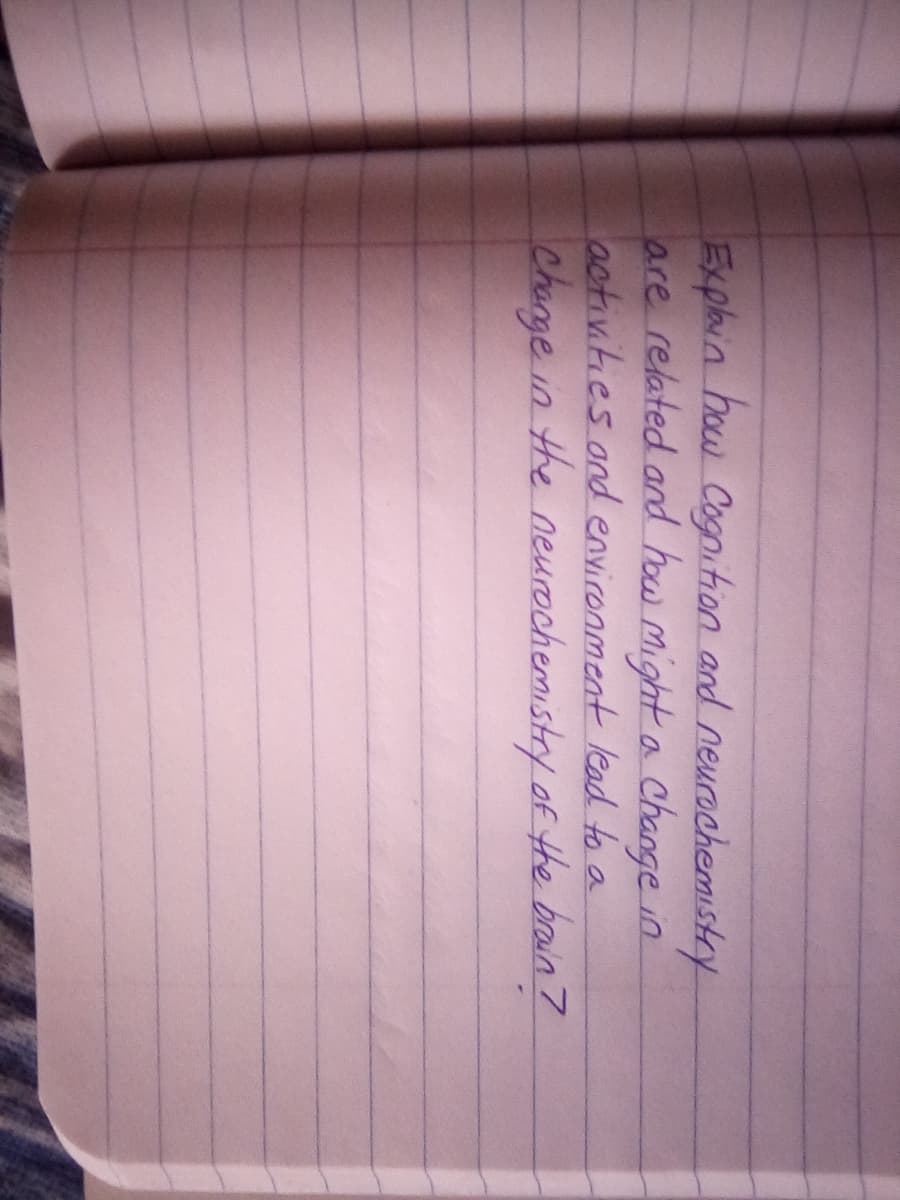 Explain how Cognition and neurochemistry
are related and how might a change in
activities and environment lead to a
change in the neurochemistry of the brain?